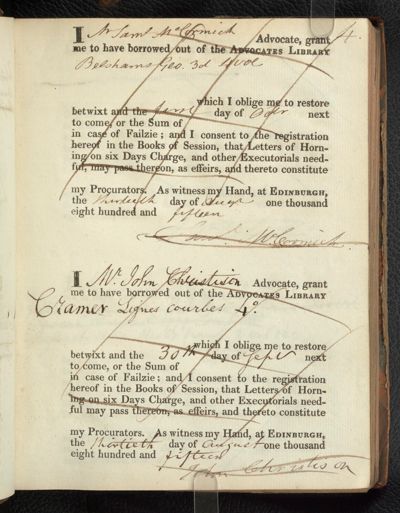 4.
I Mr Saml McCormick Advocate, grant
me to have borrowed out of the ADVOCATES LIBRARY
Belshams Geo. 3d 4 vol
which I oblige me to restore
betwixt and the first day of Octr next
to come, or the Sum of
in case of Failzie; and I consent to the registration
hereof in the Books of Session, that Letters of Horn-
ing on six Days Charge, and other Executorials need-
ful, may pass thereon, as effeirs, and thereto constitute
my Procurators. As witness my Hand, at EDINBURGH,
the thirtieth day of Augt one thousand
eight hundred and fifteen
Saml McCormick
I Mr. John Christison Advocate, grant
me to have borrowed out of the ADVOCATES LIBRARY
Cramer Lignes courbes 4o.
which I oblige me to restore
betwixt and the 30th day of Sept next
to come, or the Sum of
in case of Failzie; and I consent to the registration
hereof in the Books of Session, that Letters of Horn-
ing on six Days Charge, and other Executorials need-
ful may pass thereon, as effeirs, and thereto constitute
my Procurators. As witness my Hand, at EDINBURGH,
the thirtieth day of August one thousand
eight hundred and fifteen
John Christison